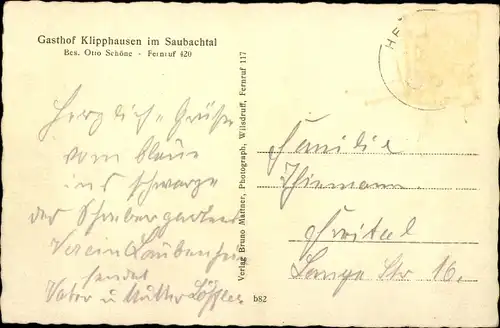 Gasthof Klipphausen im Saubachtal
Bes. Otto Schöne - Fernruf 420
HE
Herzliche Grüße
vom
ins schwarze
der Schrebergarten
Verein
sendet
Vater u Mutter Löffler
Verlag Bruno Mattner, Photograph, Wilsdruff, Fernruf 117
b82
Familie
Thiemann
Freital
Lange Str 16.